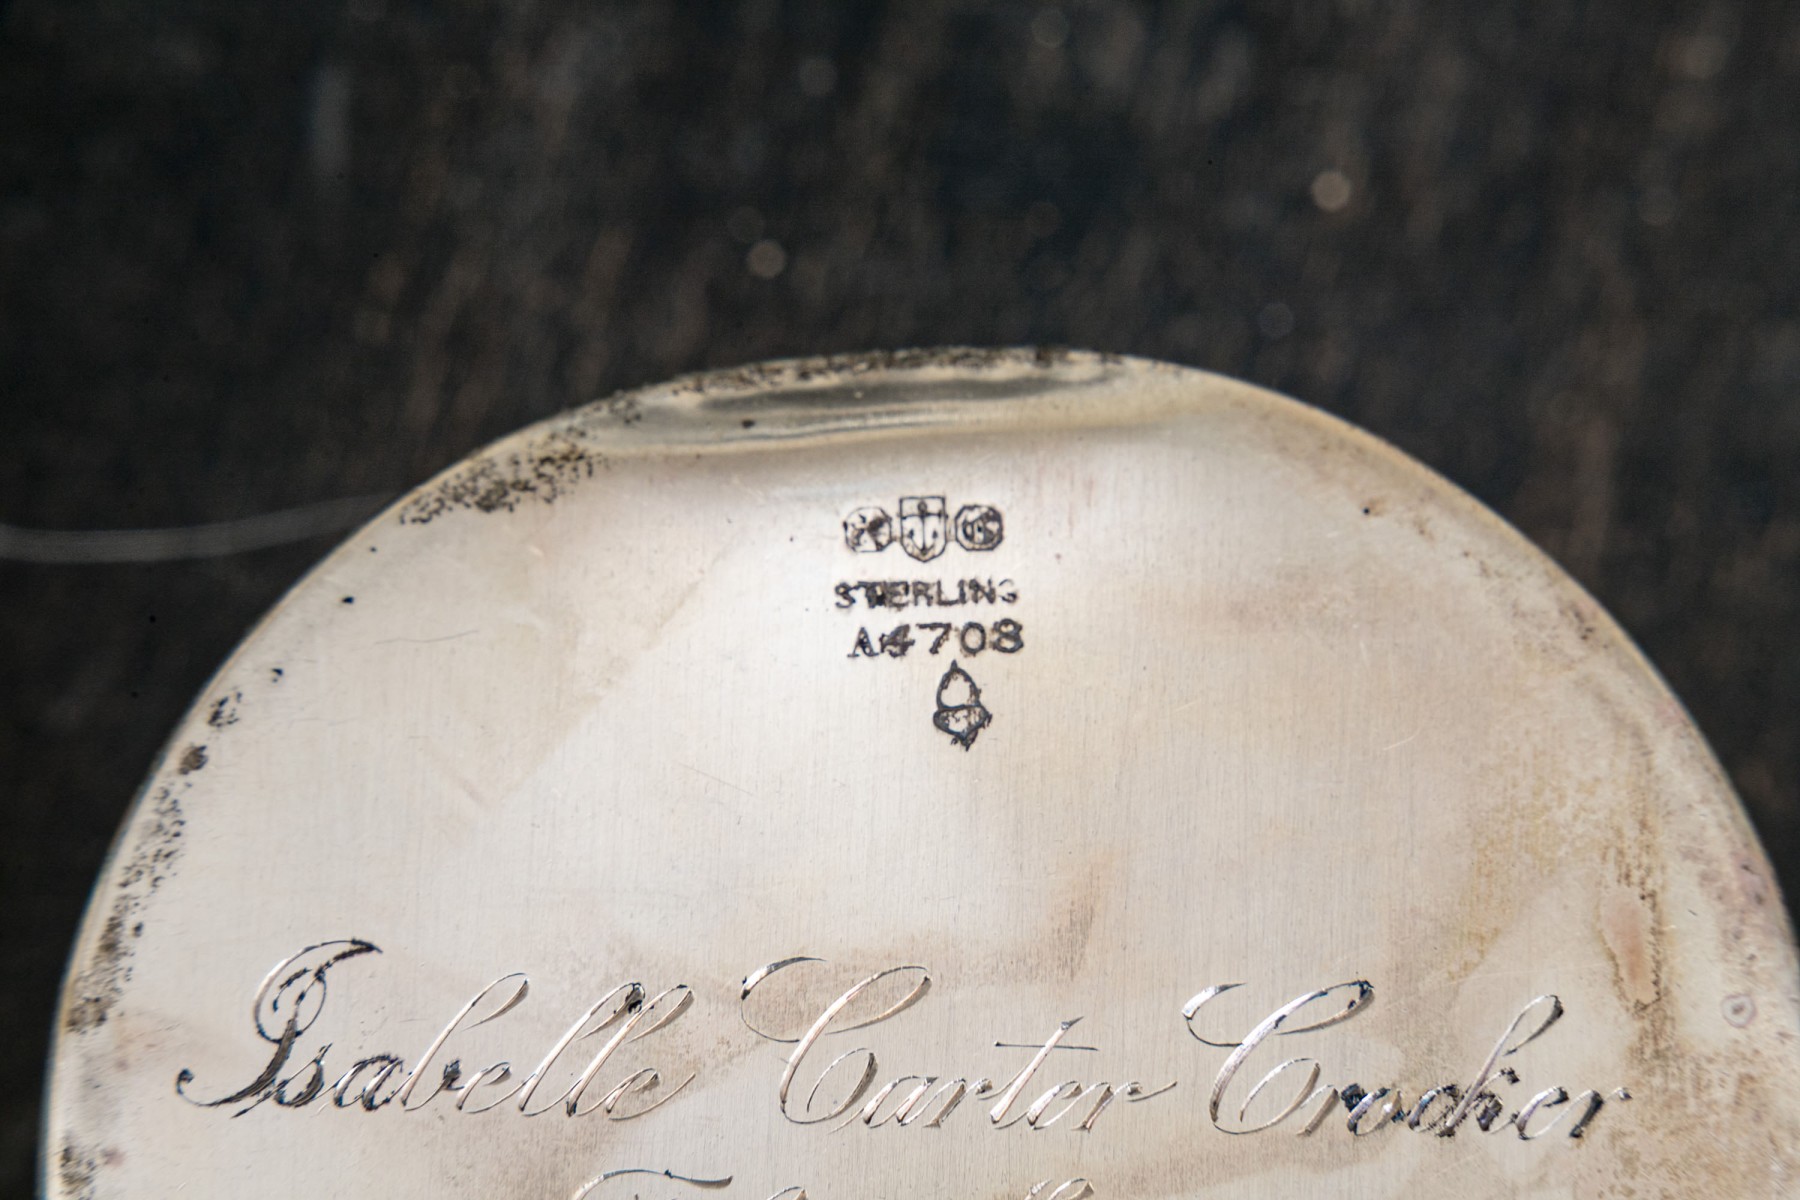 STERLING
A4708
Isabelle Carter Crocker